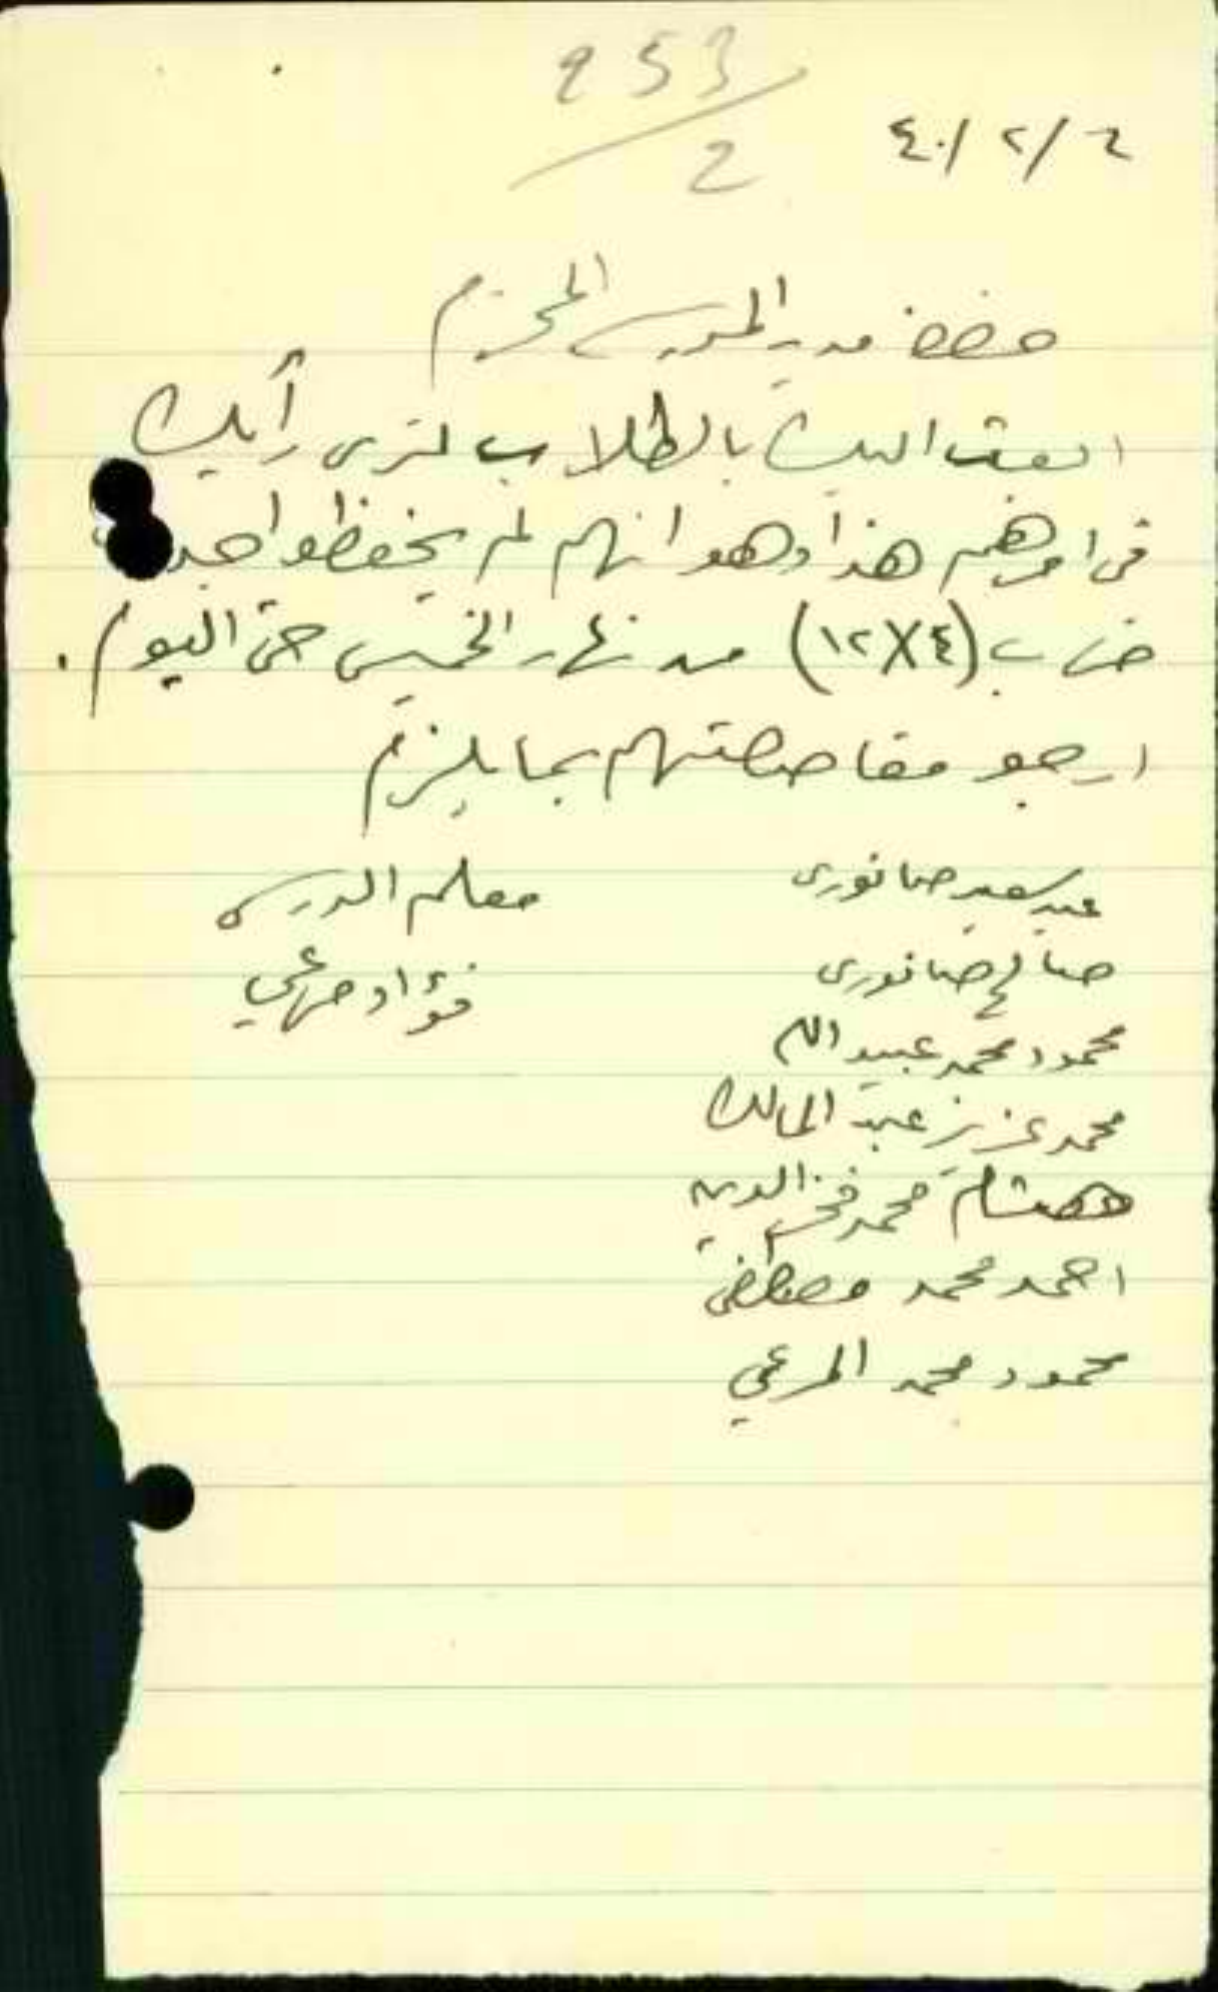 253
2
٦/٢/٤٠
حضرة مدير المدرسة المحترم
ابعث اليك بالطلاب لترى رأيك
في امرهم هذا وهو انهم لم يحفظوا جدول
ضرب (٤X١٢) من نهار الخميس حتى اليوم.
ارجو مقاصصتهم بما يلزم
معلم الدرس
فؤاد مرعي
عبد سعيد صانوري
صالح صانوري
محمود محمد عبيد الله
محمد عزيز عبد المالك
هشام محمد فخر الدين
احمد محمد مصطفى
محمود محمد المرعي